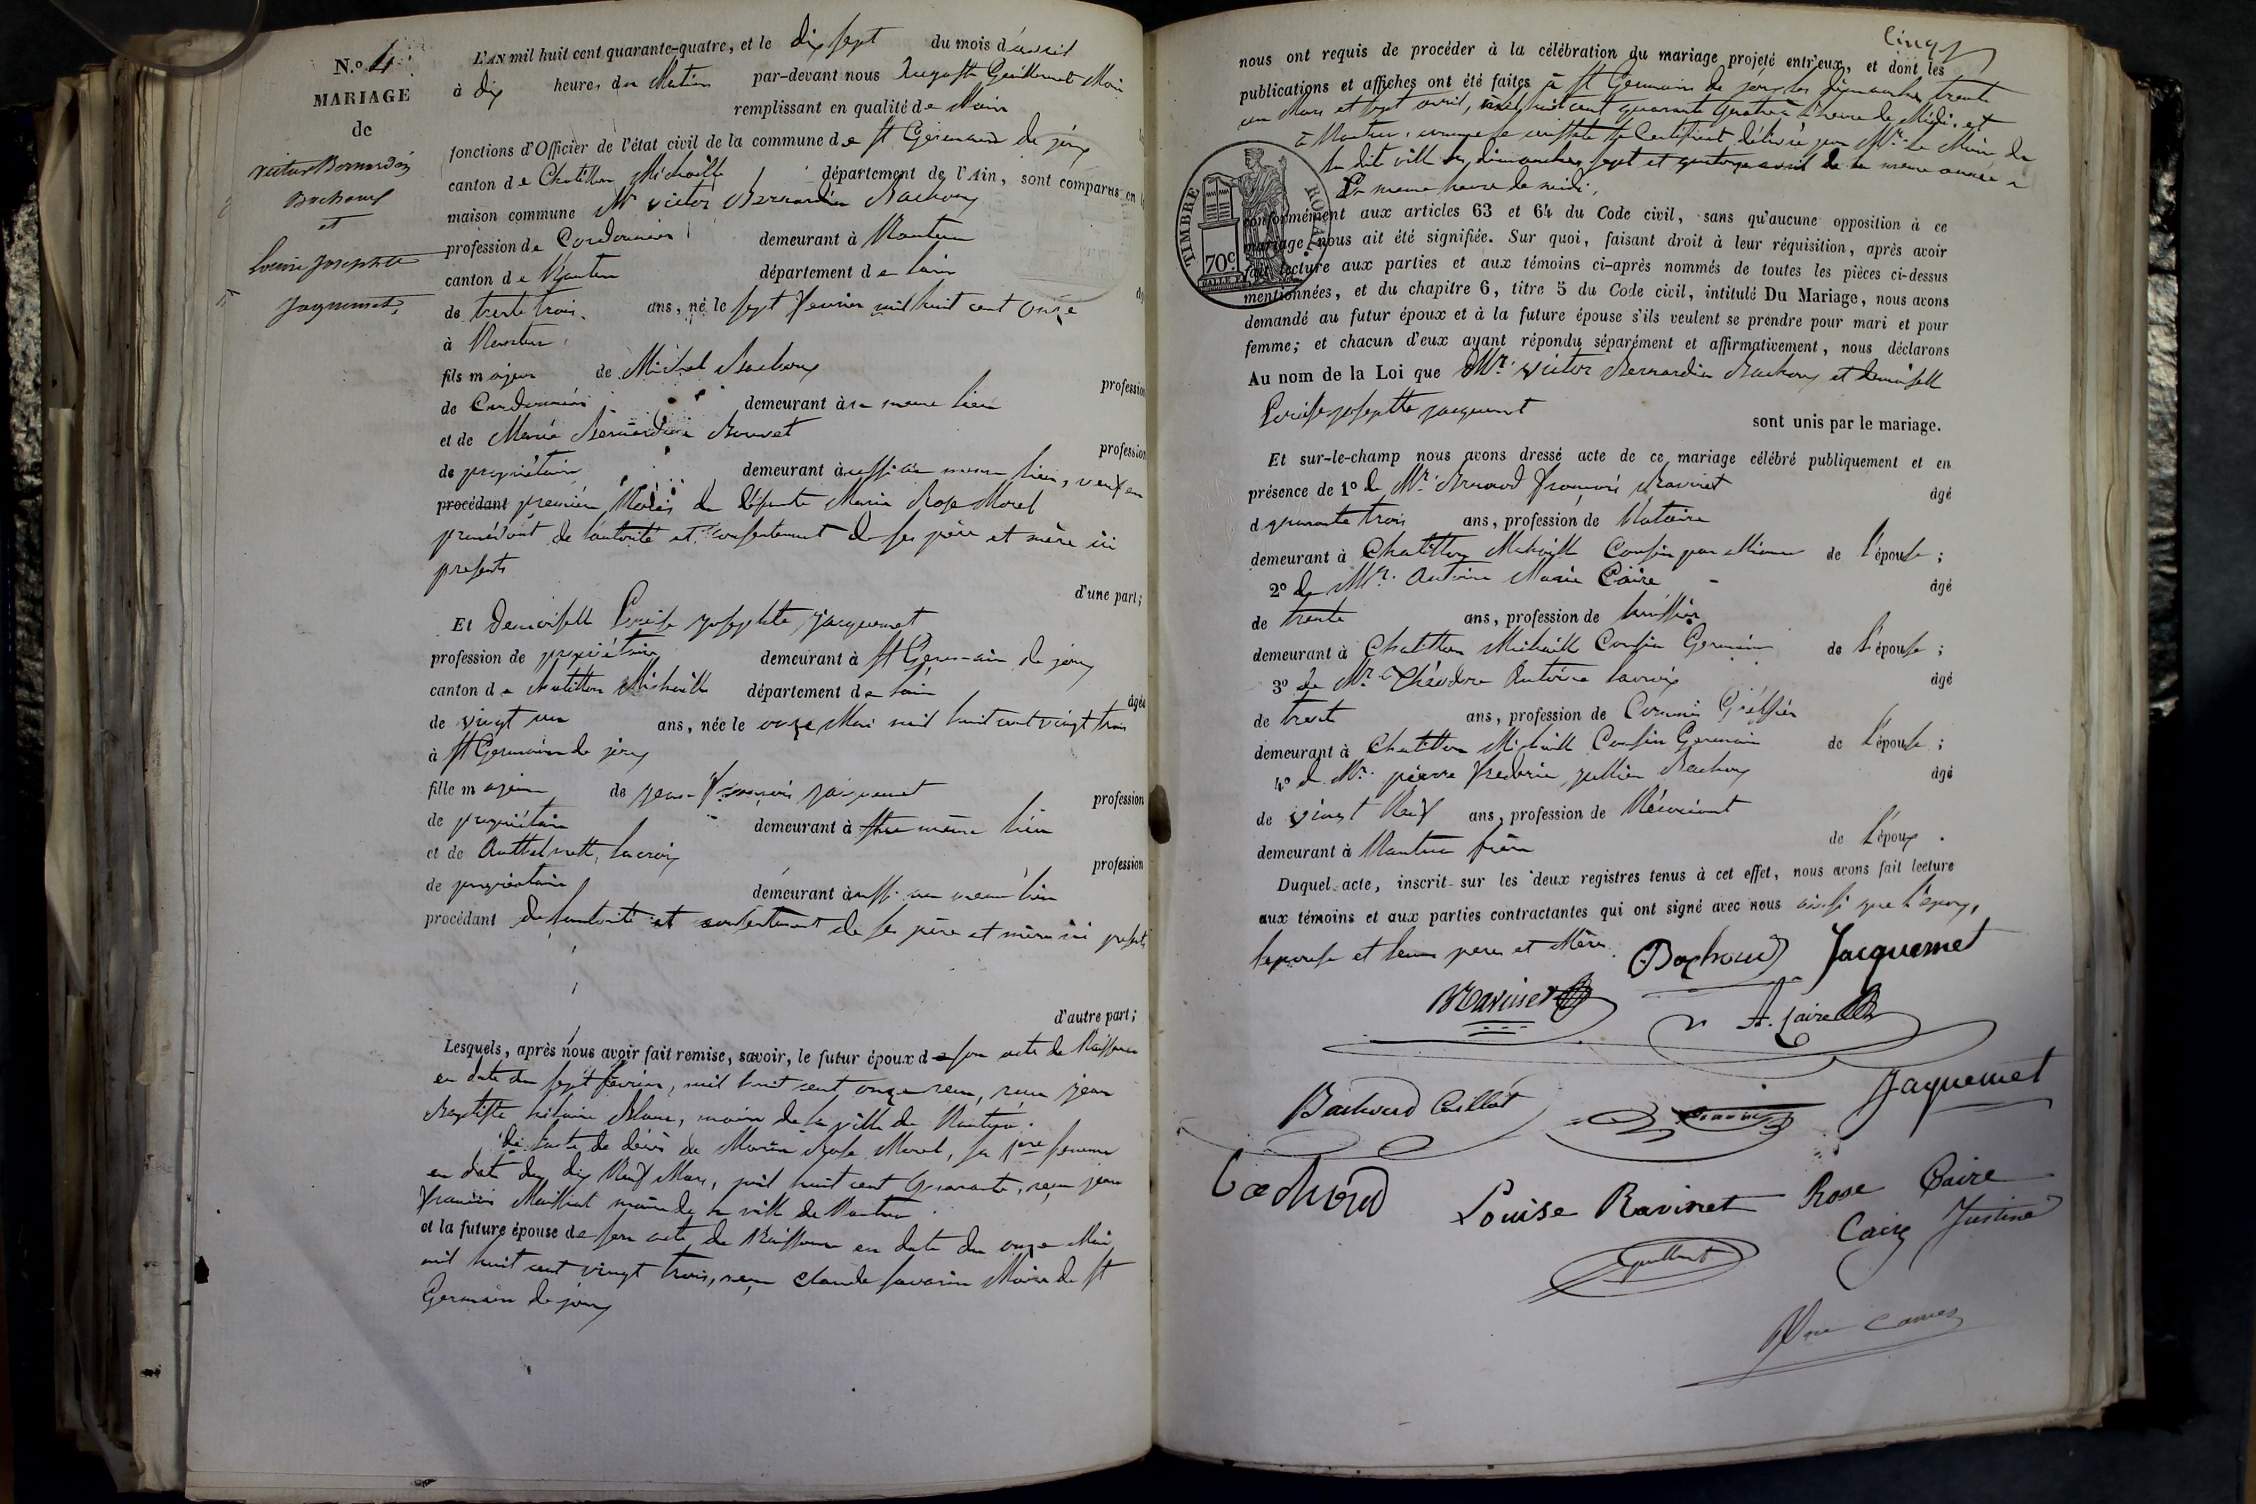 N.o 4
MARIAGE
de
Victor Bernardin
Bachoud
et
Louise Josephte
Jaquemet
L'AN mil huit cent quarante-quatre, et le dix sept du mois d'avril
à dix heures du Matin par-devant nous Auguste Guillermet Maire
remplissant en qualité de Maire
fonctions d'Officier de l'état civil de la commune de St Germain de joux
canton de Chatillon Michaille département de l'Ain, sont comparus en la
maison commune Mr victor Bernardin Bachoud
profession de Cordonnier demeurant à Nantua
canton de Nantua département de l'ain
de trente trois ans, né le sept fevrier mil huit cent onze
à Nantua
fils majeur de Michel Bachoud profession
de Cordonnier demeurant au meme lieu
et de Marie Bernardine Bonnet profession
de propriétaire demeurant aussi au meme lieu, veuf en
procédant premiere Noces de Défunte Marie Rose Morel
procédant de l'autorité et consentement de ses père et mère ici
presents
d'une part;
Et Demoiselle Louise josephte jacquemet
profession de propriétaire demeurant à St Germain de joux
canton de chatillon Michaille département de l'ain âgée
de vingt un ans, née le onze Mai mil huit cent vingt trois
à St Germain de joux
fille majeure de jean François jacquemet profession
de propriétaire demeurant à meme lieu
et de Anthelmette Lacroix profession
de propriétaire demeurant aussi au meme lieu
procédant de l'autorité et consentement de ses père et mère ici presents
d'autre part;
Lesquels, après nous avoir fait remise, savoir, le futur époux de son acte de Naissance
en date du sept fevrier, mil huit cent onze reçu, jean
Baptiste hilaire Blanc, maire de la ville de Nantua.
de l'acte de décès de Marie Rose Morel, sa 1ere femme
en date du dix Neuf Mars, mil huit cent quarante, reçu jean
françois Maissiat maire de la ville de Nantua
et la future épouse de son acte de Naissance en date du onze Mai
mil huit cent vingt trois, reçu claude savarin Maire de St
Germain de joux
Cinq
nous ont requis de procéder à la célébration du mariage projeté entr'eux, et dont les
publications et affiches ont été faites à St Germain de joux les dimanches trente
un Mars et sept avril, mil huit cent quarante quatre à heure de Midi, et
à Nantua, comme se constate le Certificat délivré par Mr le Maire de
la dite ville les dimanches sept et quatorze avril de la meme année à
la meme heure de midi,
TIMBRE ROYAL
70c
conformément aux articles 63 et 64 du Code civil, sans qu'aucune opposition à ce
mariage nous ait été signifiée. Sur quoi, faisant droit à leur réquisition, après avoir
fait lecture aux parties et aux témoins ci-après nommés de toutes les pièces ci-dessus
mentionnées, et du chapitre 6, titre 5 du Code civil, intitulé Du Mariage, nous avons
demandé au futur époux et à la future épouse s'ils veulent se prendre pour mari et pour
femme; et chacun d'eux ayant répondu séparément et affirmativement, nous déclarons
Au nom de la Loi que Mr. victor Bernardin Bachoud et demoiselle
Louise josephte jacquemet
sont unis par le mariage.
Et sur-le-champ nous avons dressé acte de ce mariage célébré publiquement et en
présence de 1o de Mr. françois Ravinet âgé
d quarante trois ans, profession de Notaire
demeurant à Chatillon Michaille Cousin par alliance de l'épouse;
2o de Mr. Antoine Marie Caire âgé
de trente ans, profession de huissier
demeurant à Chatillon Michaille Cousin Germain de l'épouse;
3o de Mr. Théodore Antoine Lacroix âgé
de trente ans, profession de Commis Gréffier
demeurant à Chatillon Michaille Cousin Germain de l'épouse;
4o de Mr. pierre frederic jullien Bachoud âgé
de vingt Neuf ans, profession de Négociant
demeurant à Nantua frère de l'époux.
Duquel acte, inscrit sur les deux registres tenus à cet effet, nous avons fait lecture
aux témoins et aux parties contractantes qui ont signé avec nous ainsi que l'époux,
l'epouse et leurs peres et Mères.
Bachoud Jacquemet
Ravinet A. Caire
Bachoud Caillat Jaquemet
Bachoud Louise Ravinet Rose Caire
Caire Justine